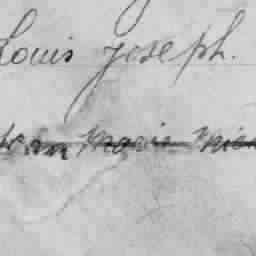 Louis Joseph.
Jean Marie